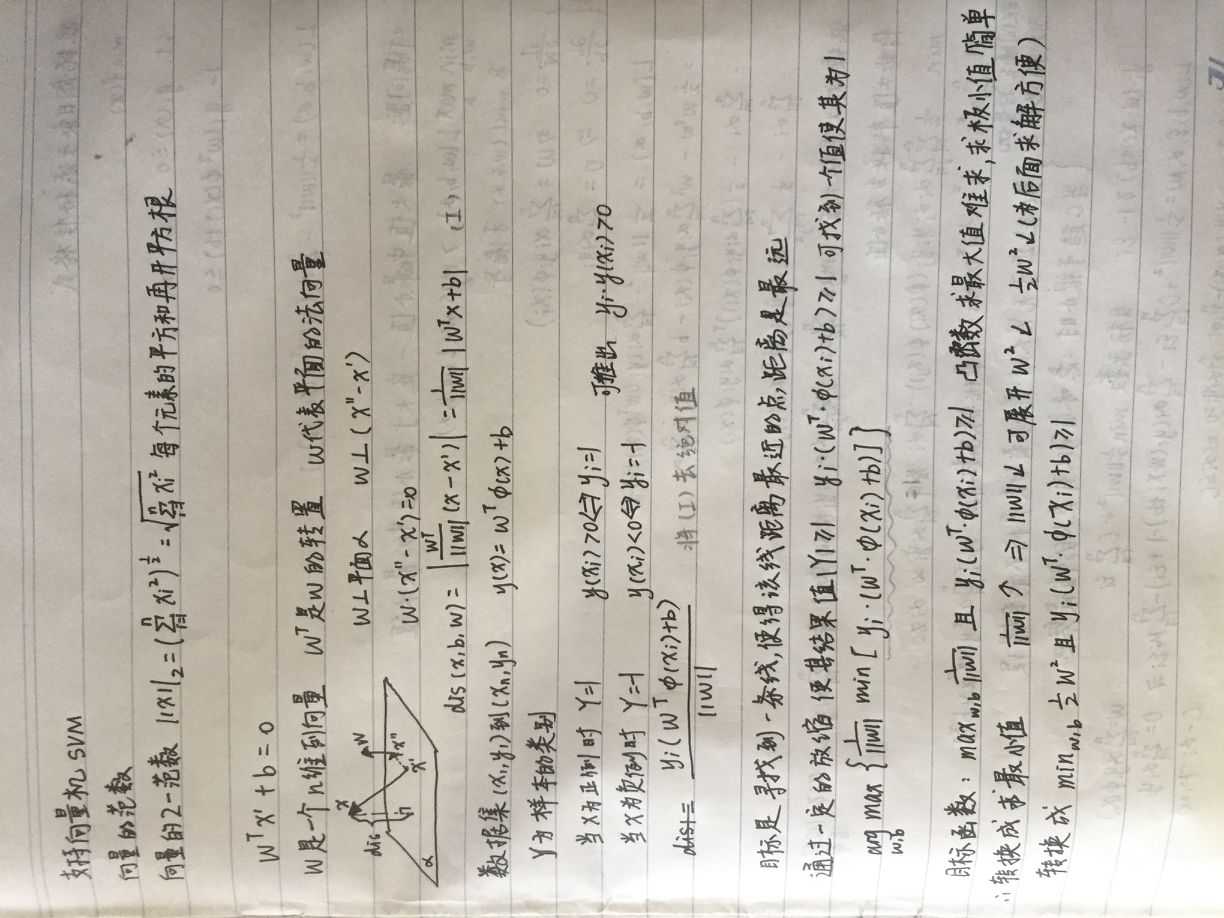 支持向量机 SVM
向量的范数
向量的2-范数 ||x||₂ = (Σᵢ₌₁ⁿ xᵢ²)^½ = √(Σᵢ₌₁ⁿ xᵢ²) 每个元素的平方和再开平方根
Wᵀx'+b=0
W是一个n维列向量 Wᵀ是W的转置 W代表平面的法向量
dis x h W x' x'' α
W⊥平面α W⊥(x''-x')
W·(x''-x')=0
dis(x,b,w) = |Wᵀ/||W|| (x-x')| = 1/||W|| |Wᵀx+b| (I)
数据集(x₁,y₁)到(xₙ,yₙ) y(x)=Wᵀφ(x)+b
Y为样本的类别
当X为正例时 Y=1 y(xᵢ)>0⇔yᵢ=1
当X为负例时 Y=-1 y(xᵢ)<0⇔yᵢ=-1
可推出 yᵢ·y(xᵢ)>0
dist= yᵢ(Wᵀφ(xᵢ)+b)/||W|| 将(I)去绝对值
目标是寻找到一条线,使得该线距离最近的点,距离是最远
通过一定的放缩 使其结果值|Y|≥1 yᵢ·(Wᵀ·φ(xᵢ)+b)≥1 可找到一个值使其为1
arg max w,b {1/||W|| min [yᵢ·(Wᵀ·φ(xᵢ)+b)]}
目标函数: max w,b 1/||W|| 且 yᵢ(Wᵀ·φ(xᵢ)+b)≥1 凸函数求最大值难求,求极小值简单
∴转换成求最小值 1/||W||↗ ⇒ ||W||↙ 可展开 W²↙ ½W²↙(为后面求解方便)
转换成 min w,b ½W² 且 yᵢ(Wᵀ·φ(xᵢ)+b)≥1